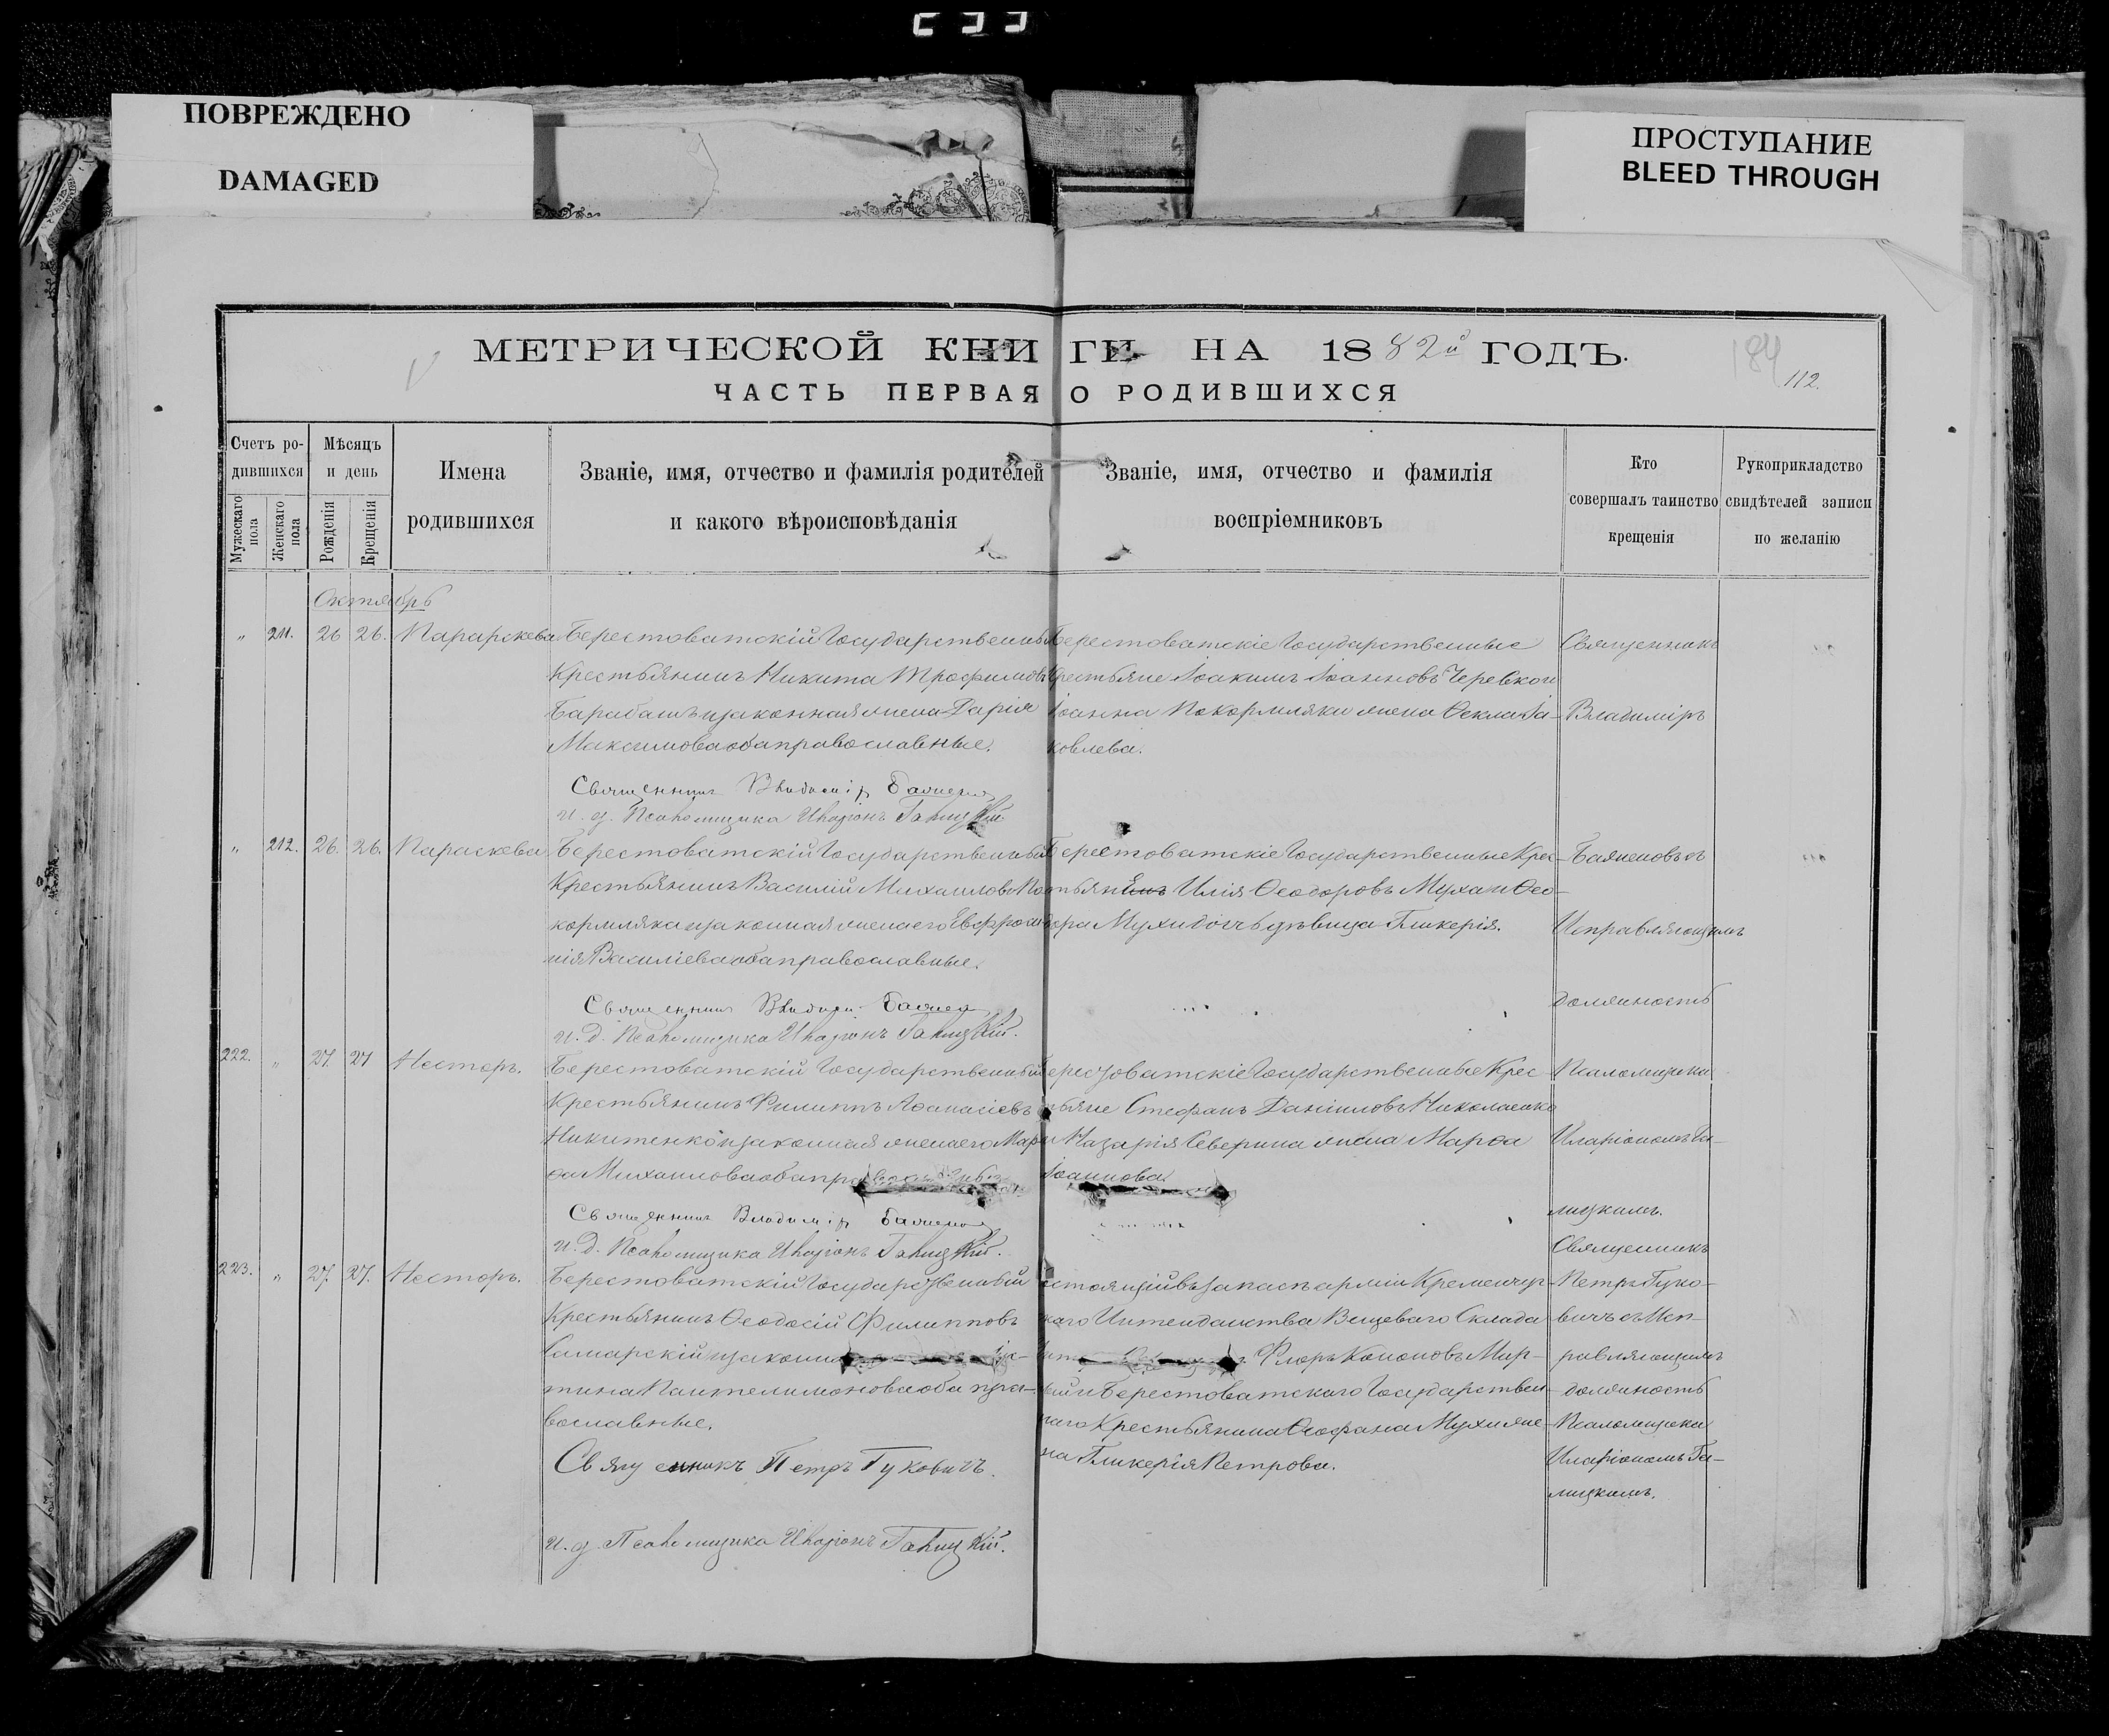 ПОВРЕЖДЕНО
DAMAGED
ПРОСТУПАНИЕ
BLEED THROUGH
МЕТРИЧЕСКОЙ КНИГИ НА 1882й ГОДЪ.
184
112.
ЧАСТЬ ПЕРВАЯ О РОДИВШИХСЯ
Счетъ ро-
дившихся
Мужескаго пола
Женскаго пола
Мѣсяцъ
и день
Рожденія
Крещенія
Имена
родившихся
Званіе, имя, отчество и фамилія родителей
и какого вѣроисповѣданія
Званіе, имя, отчество и фамилія
воспріемниковъ
Кто
совершалъ таинство
крещенія
Рукоприкладство
свидѣтелей записи
по желанію
Октябрь
„ 211. 26 26. Парарскева
Берестоватскій Государственный
Крестьянинъ Никита Трофимовъ
Барабашъ и законная жена Дарія
Максимова оба православные.
Священникъ Владиміръ Баженовъ
и. д. Псаломщика Иларіонъ Галицкій
Берестоватскіе Государственные
Крестьяне Іоакимъ Іоанновъ Черевко и
Іоанна Покормляки жена Ѳекла Іа-
ковлева.
Священникъ
Владиміръ
„ 212. 26. 26. Параскева
Берестоватскій Государственный
Крестьянинъ Василій Михаиловъ По-
кормляка и законная жена его Евфроси-
нія Василіева оба православные.
Священникъ Владимір Баженов
и. д. Псаломщика Иларіонъ Галицкій.
Берестоватскіе Государственные Крес-
тьяне Илія Ѳеодоровъ Муха и Ѳео-
дора Мухи дочь дѣвица Гликерія.
Баженовъ съ
Исправляющимъ
должность
222. „ 27. 27 Несторъ.
Берестоватскій Государственный
Крестьянинъ Филиппъ Аѳанасіевъ
Никитенко и законная жена его Мар-
ѳа Михаилова оба православные
Священникъ Владиміръ Баженовъ
и. д. Псаломщика Иларіонъ Галицкій.
Берестоватскіе Государственные Крес
тьяне Стефанъ Даніиловъ Николаенко
и Назарія Северина жена Марѳа
Іоаннова.
Псаломщика
Иларіономъ Га-
лицкимъ.
223. „ 27. 27. Несторъ.
Берестоватскій Государственный
Крестьянинъ Ѳеодосій Филипповъ
Самарскій и законна
тина Пантелимонова оба пра-
вославные.
Священникъ Петръ Гуковичъ.
и. д. Псаломщика Иларіонъ Галицкій.
состоящій въ запасѣ арміи Кременчуг-
скаго Интендантства Вещеваго Склада
Флоръ Кононовъ Мир-
и Берестоватскаго Государствен-
наго Крестьянина Ѳеофана Мухи же-
на Гликерія Петрова.
Священникъ
Петръ Гуко-
вичъ съ Исп-
равляющимъ
должность
Псаломщика
Иларіономъ Га-
лицкимъ.